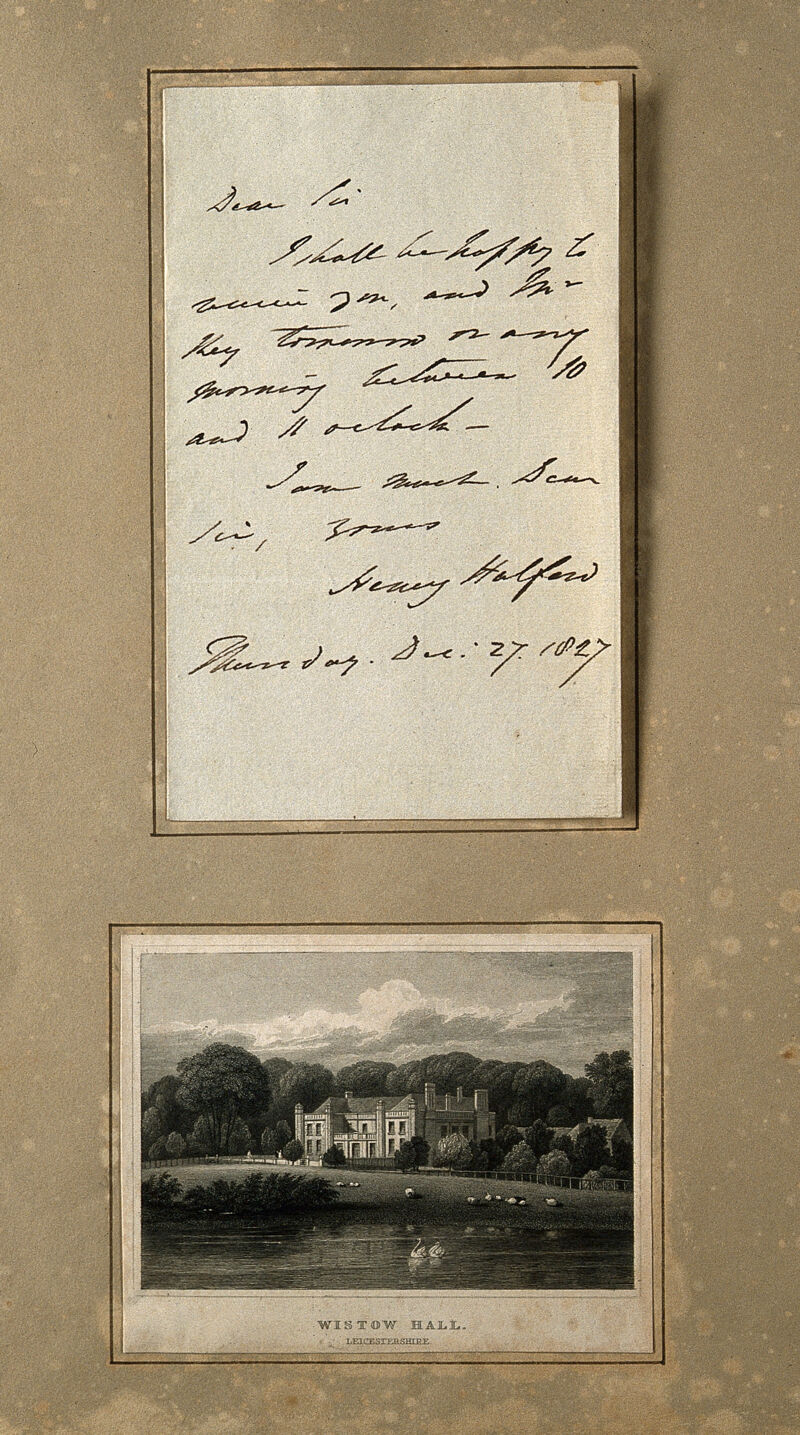 Dear Sir
I shall be happy to
receive you, and Mr
Key tomorrow or any
morning between 10
and 11 oclock —
I am much. Dear
Sir, Yours
Henry Halford
Thursday. Dec: 27. 1827
WISTOW HALL.
LEICESTERSHIRE